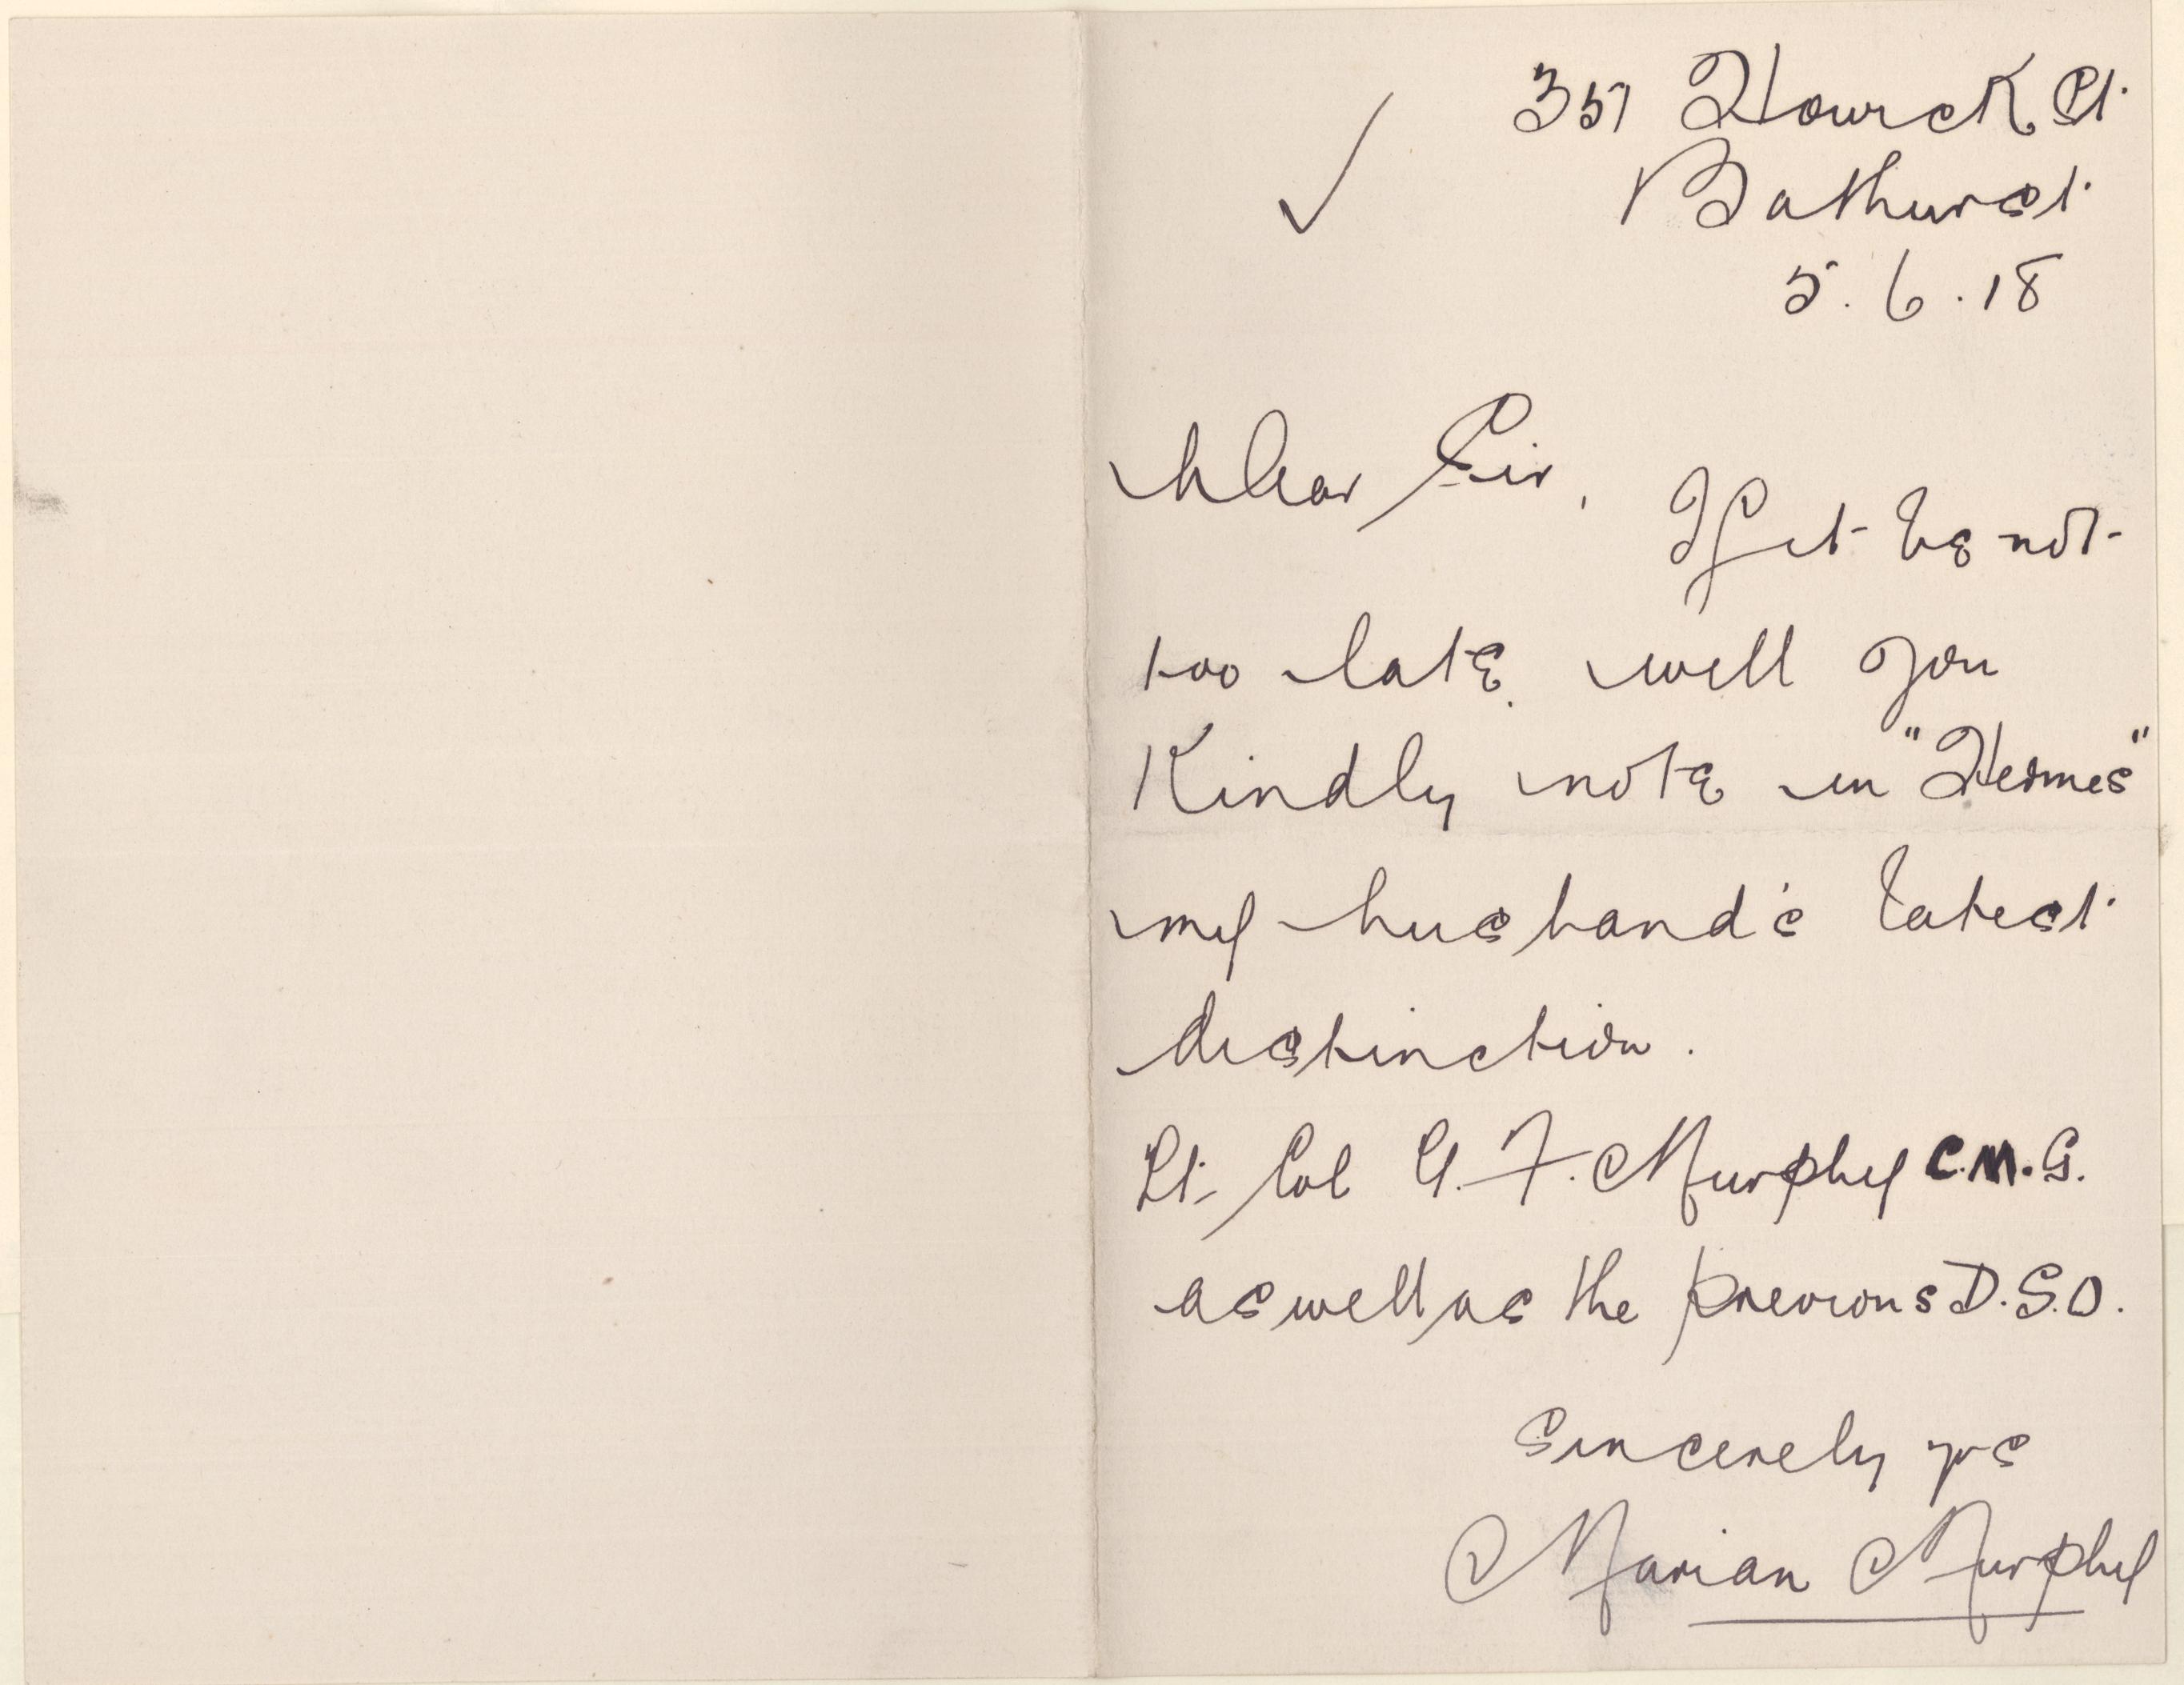 357 Howick St.
Bathurst.
5.6.18
Dear Sir,
If it be not
too late, will you
Kindly note in "Hermes"
my husband's latest
distinction.
Lt. Col G. F. Murphy C.M.G.
as well as the previous D.S.O.
Sincerely yrs
Marian Murphy